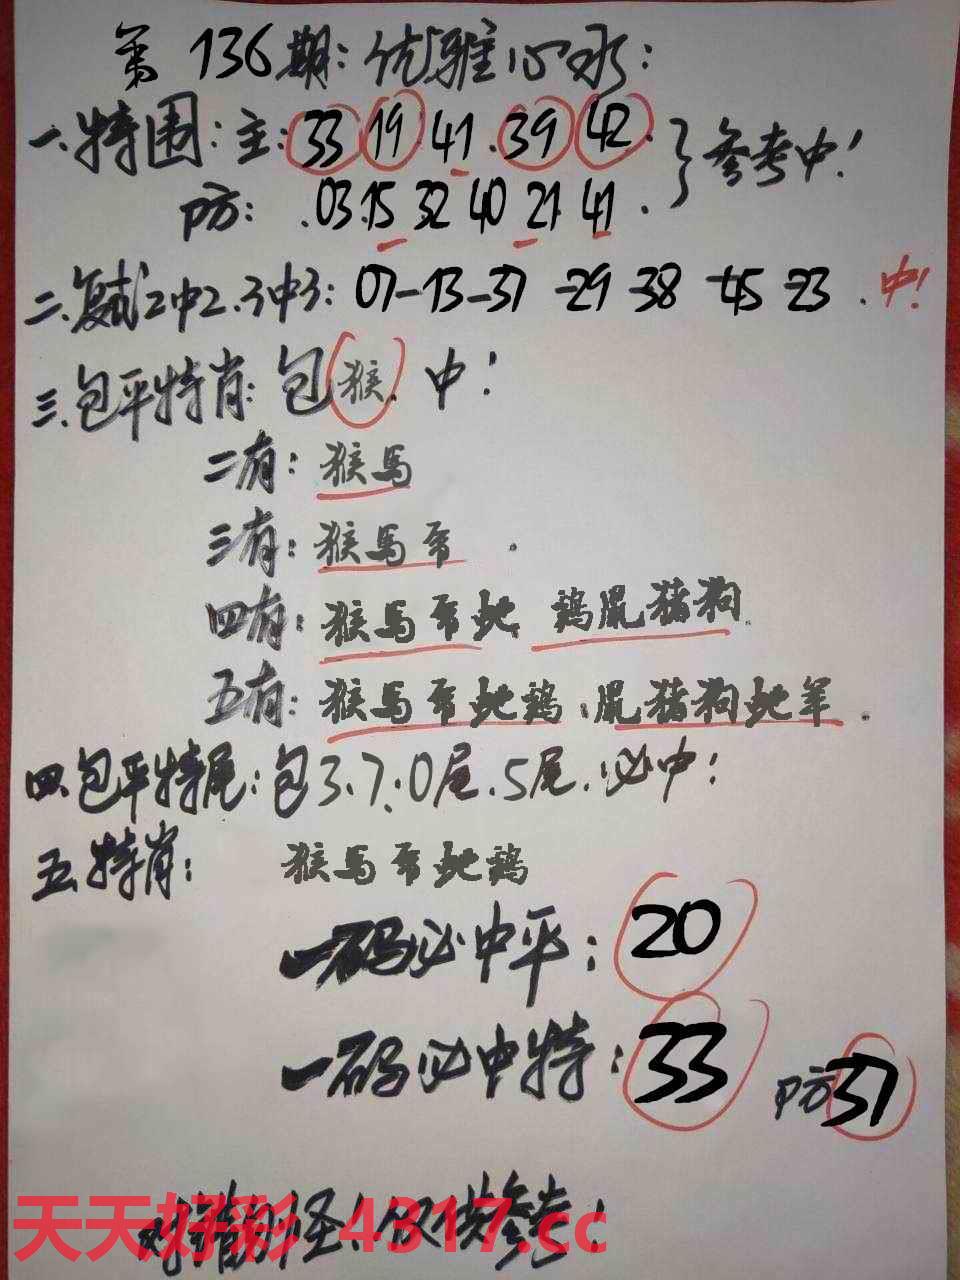 第136期：优雅心水：
一.特围：主：33 19 41. 39 42. }参考中！
防： .03.15 32 40 21 41 .
二.复试2中2.3中3：07-13-37-29-38-45-23.中！
三.包平特肖：包猴. 中！
二有：猴马
三有：猴马帝 .
四有：猴马帝虵 鸡鼠猪狗.
五有：猴马帝虵鸡.鼠猪狗虵羊.
四.包平特尾：包3.7.0尾.5尾.必中！
五.特肖： 猴马帝虵鸡
一码必中平：20
一码必中特：33 防37
对错勿怪！仅供参考！
天天好彩 4317.cc